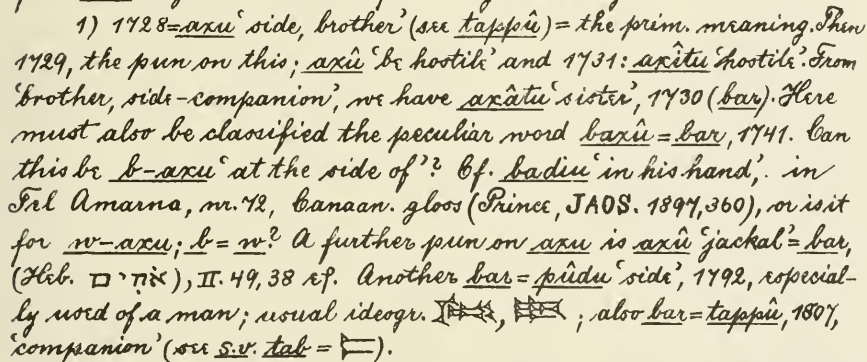 1) 1728=axu 'side, brother' (see tappû) = the prim. meaning. Then
1729, the pun on this; axû 'be hostile' and 1731: axîtu 'hostile'. From
'brother, side-companion', we have axâtu 'sister', 1730 (bar). Here
must also be classified the peculiar word baxû = bar, 1741. Can
this be b-axu 'at the side of'? Cf. badiu 'in his hand', in
Tel Amarna, nr. 72, Canaan. gloos (Prince, JAOS. 1897, 360), or is it
for w-axu; b = w? A further pun on axu is axû 'jackal' = bar,
(Heb. אחים), II. 49, 38 ef. Another bar = pûdu 'side', 1792, especial-
ly used of a man; usual ideogr. , ; also bar = tappû, 1807,
'companion' (see s.v. tab = ).